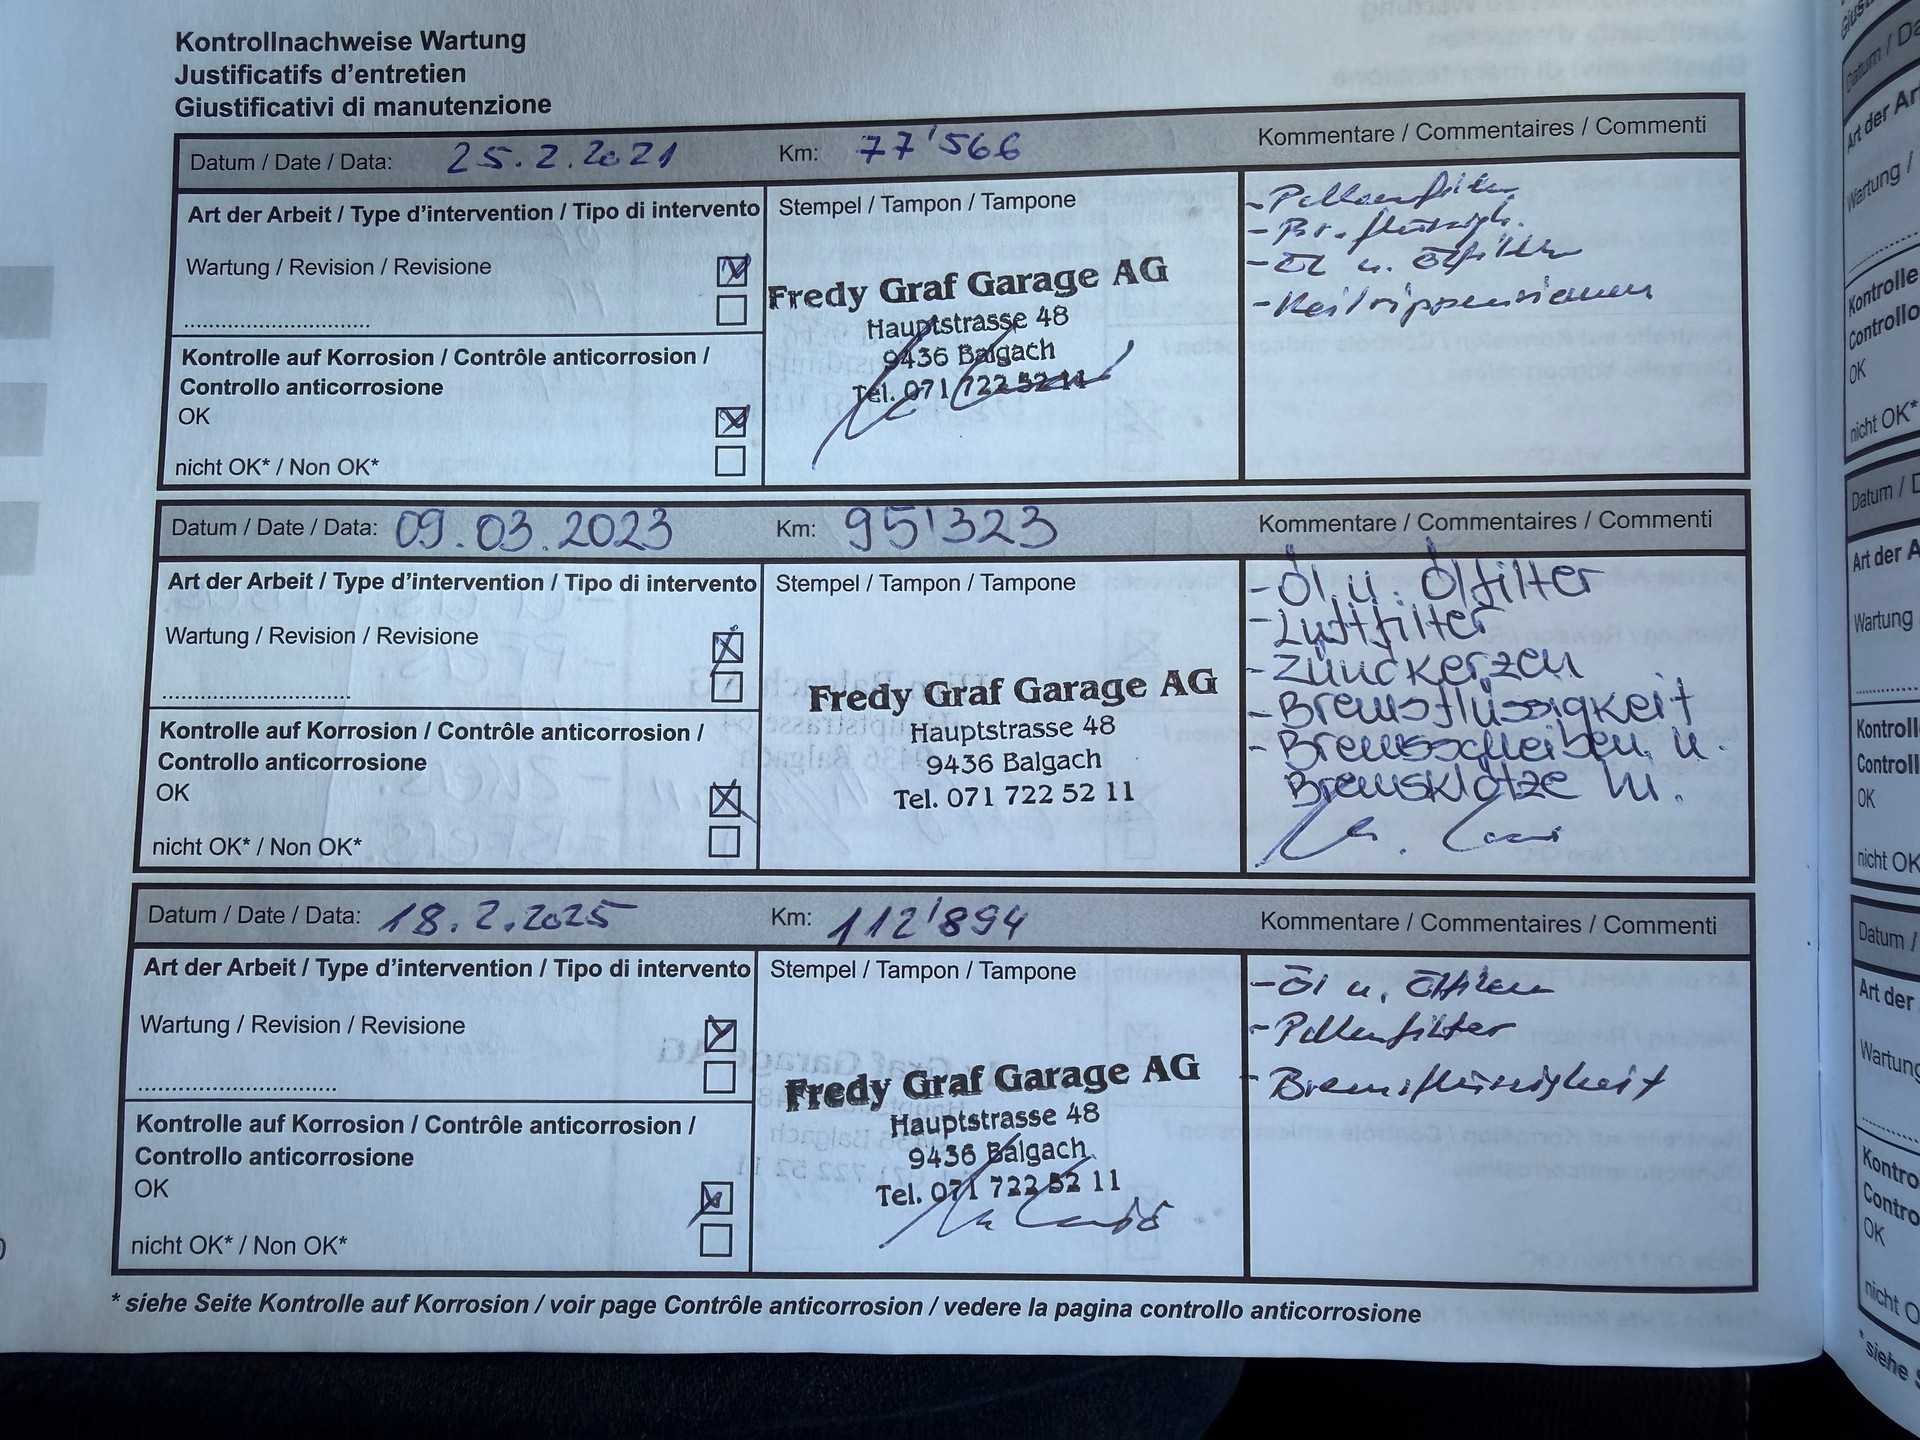 Kontrollnachweise Wartung
Justificatifs d'entretien
Giustificativi di manutenzione
Datum / Date / Data: 25.2.2021 Km: 77'566 Kommentare / Commentaires / Commenti
Art der Arbeit / Type d'intervention / Tipo di intervento
Wartung / Revision / Revisione
Kontrolle auf Korrosion / Contrôle anticorrosion /
Controllo anticorrosione
OK
nicht OK* / Non OK*
Stempel / Tampon / Tampone
Fredy Graf Garage AG
Hauptstrasse 48
9436 Balgach
Tel. 071 722 52 11
- Pollenfilter
- Br. flüssigk.
- Öl u. Ölfilter
- Keilrippenriemen
Datum / Date / Data: 09.03.2023 Km: 95'323 Kommentare / Commentaires / Commenti
Art der Arbeit / Type d'intervention / Tipo di intervento
Wartung / Revision / Revisione
Kontrolle auf Korrosion / Contrôle anticorrosion /
Controllo anticorrosione
OK
nicht OK* / Non OK*
Stempel / Tampon / Tampone
Fredy Graf Garage AG
Hauptstrasse 48
9436 Balgach
Tel. 071 722 52 11
- Öl u. Ölfilter
- Luftfilter
- Zündkerzen
- Bremsflüssigkeit
- Bremsscheiben u.
Bremsklötze
Datum / Date / Data: 18.2.2025 Km: 112'894 Kommentare / Commentaires / Commenti
Art der Arbeit / Type d'intervention / Tipo di intervento
Wartung / Revision / Revisione
Kontrolle auf Korrosion / Contrôle anticorrosion /
Controllo anticorrosione
OK
nicht OK* / Non OK*
Stempel / Tampon / Tampone
Fredy Graf Garage AG
Hauptstrasse 48
9436 Balgach
Tel. 071 722 52 11
- Öl u. Ölfilter
- Pollenfilter
- Bremsflüssigkeit
* siehe Seite Kontrolle auf Korrosion / voir page Contrôle anticorrosion / vedere la pagina controllo anticorrosione